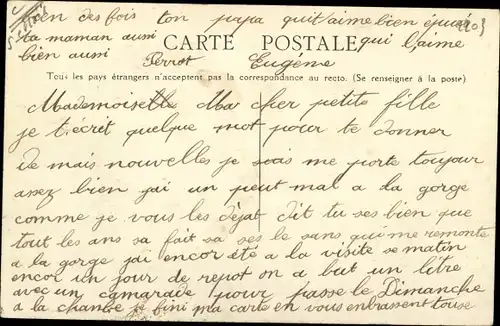 bien des fois ton papa quit aime bien
ta maman aussi qui l'aime
bien aussi Perrot Eugène
CARTE POSTALE
Tous les pays étrangers n'acceptent pas la correspondance au recto. (Se renseigner à la poste)
Mademoiselle Ma cher petite fille
je t.écrit quelque mot pour te donner
de mais nouvelles je suis me porte toujour
assez bien jai un peut mal a la gorge
comme je vous les dejat dit tu ses bien que
tout les ans sa fait sa ses le sans qui me remonte
a la gorge jai encor été a la visite se matin
encor un jour de repot on a but un litre
avec un camarade pour passe le Dimanche
a la chambre je fini ma carte en vous enbrassent touse